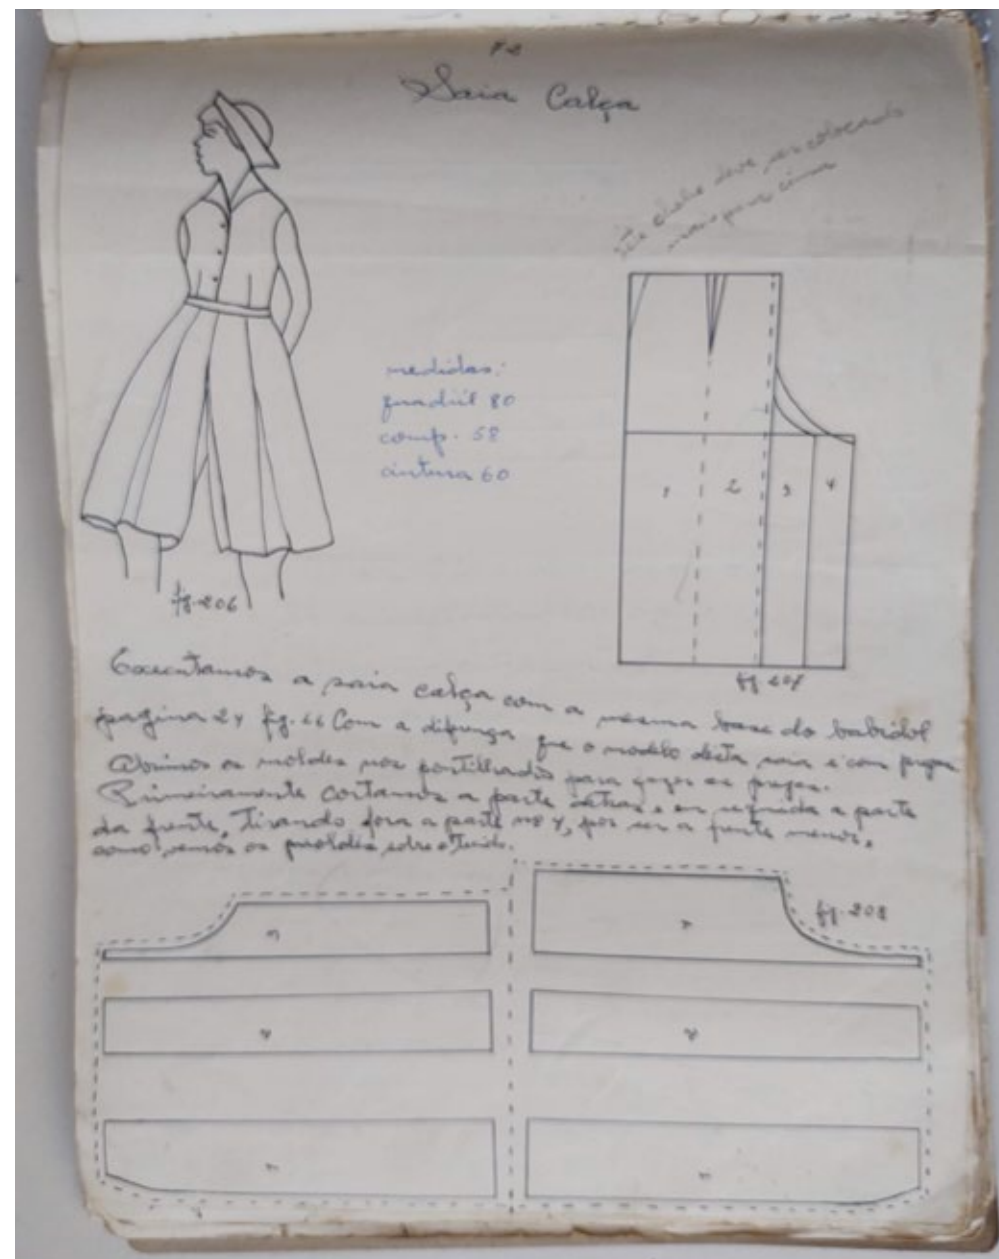 78
Saia Calça
Este clichê deve ser colocado
mais para cima
medidas:
quadril 80
comp. 58
cintura 60
1 2 3 4
fg. 206
fg. 207
Executamos a saia calça com a mesma base do babidol
pagina 24 fg. 66 Com a diferença que o modelo desta saia é com pregas
Abrimos os moldes nos pontilhados para fazer as pregas.
Primeiramente cortamos a parte detras, em seguida a parte
da frente, tirando fora a parte nº 4, por ser a frente menos,
como vemos os moldes sobre o tecido.
fg. 208